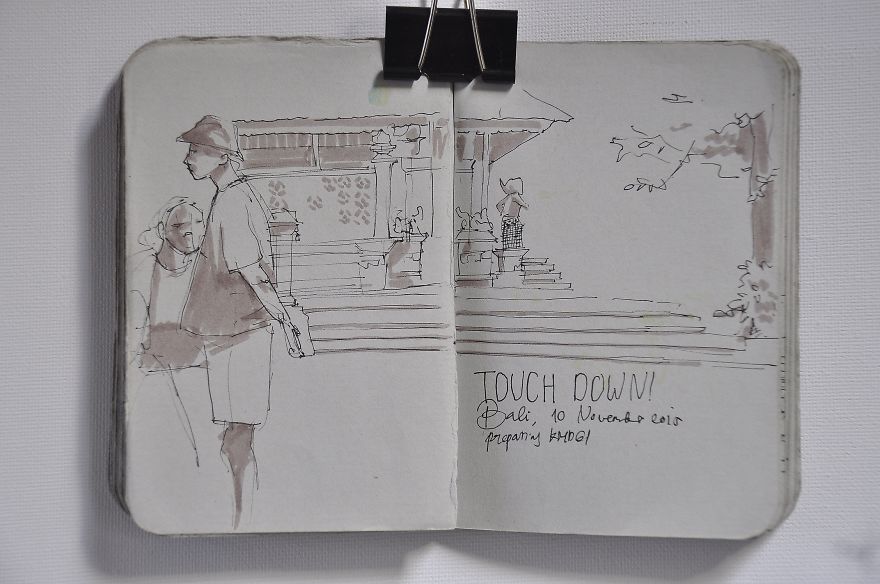 TOUCH DOWN!
Bali, 10 November 2015
preparing KMDGI